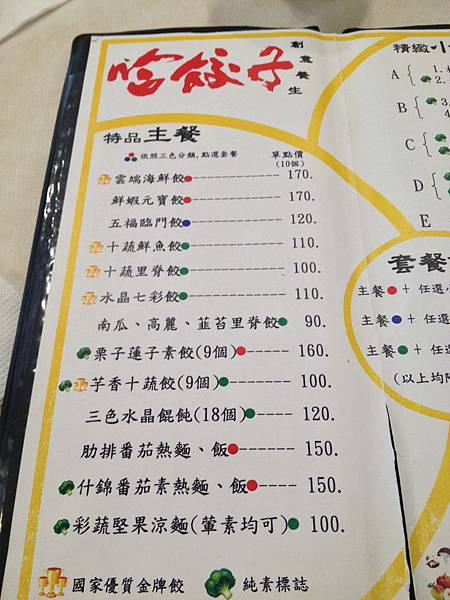 哈餃子
創意養生
特品主餐
依照三色分類,點選套餐 單點價
(10個)
雲端海鮮餃 170.
鮮蝦元寶餃 170.
五福臨門餃 120.
十蔬鮮魚餃 110.
十蔬里脊餃 100.
水晶七彩餃 110.
南瓜、高麗、韮苔里脊餃 90.
栗子蓮子素餃(9個) 160.
芋香十蔬餃(9個) 100.
三色水晶餛飩(18個) 120.
肋排番茄熱麵、飯 150.
什錦番茄素熱麵、飯 150.
彩蔬堅果涼麵(葷素均可) 100.
國家優質金牌餃 純素標誌
精緻小
A
1.
2.
B
3.
4
C
D
E
套餐
主餐 + 任選
主餐 + 任選
主餐 + 任選
(以上均附